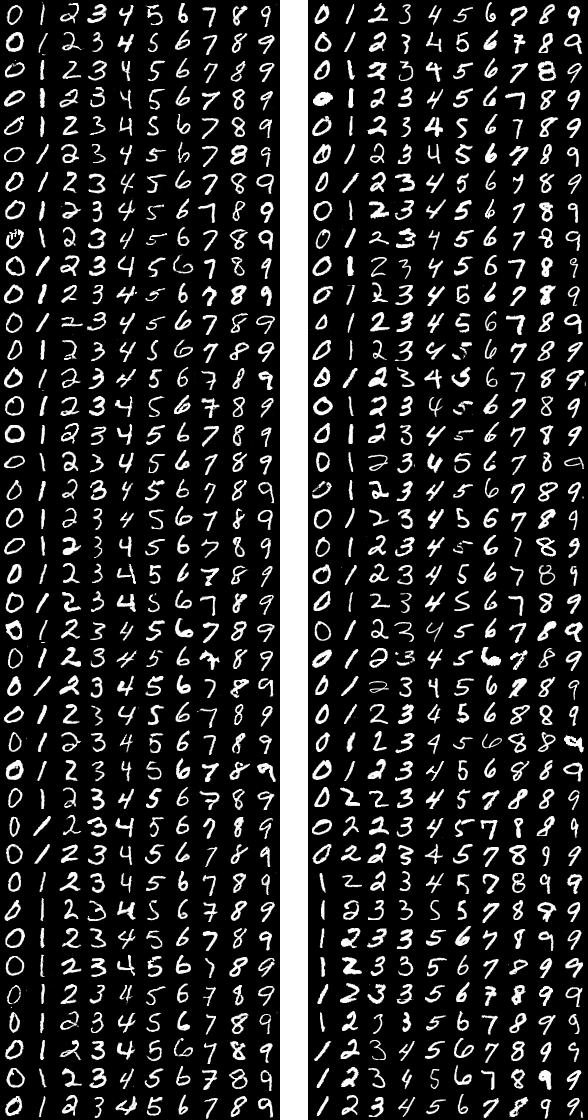 0 1 2 3 4 5 6 7 8 9
0 1 2 3 4 5 6 7 8 9
0 1 2 3 4 5 6 7 8 9
0 1 2 3 4 5 6 7 8 9
0 1 2 3 4 5 6 7 8 9
0 1 2 3 4 5 6 7 8 9
0 1 2 3 4 5 6 7 8 9
0 1 2 3 4 5 6 7 8 9
1 2 3 4 5 6 7 8 9
0 1 2 3 4 5 6 7 8 9
0 1 2 3 4 5 6 7 8 9
0 1 2 3 4 5 6 7 8 9
0 1 2 3 4 5 6 7 8 9
0 1 2 3 4 5 6 7 8 9
0 1 2 3 4 5 6 7 8 9
0 1 2 3 4 5 6 7 8 9
0 1 2 3 4 5 6 7 8 9
0 1 2 3 4 5 6 7 8 9
0 1 2 3 4 5 6 7 8 9
0 1 2 3 4 5 6 7 8 9
0 1 2 3 4 5 6 7 8 9
0 1 2 3 4 5 6 7 8 9
0 1 2 3 4 5 6 7 8 9
0 1 2 3 4 5 6 7 8 9
0 1 2 3 4 5 6 7 8 9
0 1 2 3 4 5 6 7 8 9
0 1 2 3 4 5 6 7 8 9
0 1 2 3 4 5 6 7 8 9
0 1 2 3 4 5 6 7 8 9
0 1 2 3 4 5 6 7 8 9
0 1 2 3 4 5 6 7 8 9
0 1 2 3 4 5 6 7 8 9
0 1 2 3 4 5 6 7 8 9
0 1 2 3 4 5 6 7 8 9
0 1 2 3 4 5 6 7 8 9
0 1 2 3 4 5 6 7 8 9
0 1 2 3 4 5 6 7 8 9
0 1 2 3 4 5 6 7 8 9
0 1 2 3 4 5 6 7 8 9
0 1 2 3 4 5 6 7 8 9
0 1 2 3 4 5 6 7 8 9
0 1 2 3 4 5 6 7 8 9
0 1 2 3 4 5 6 7 8 9
0 1 2 3 4 5 6 7 8 9
0 1 2 3 4 5 6 7 8 9
0 1 2 3 4 5 6 7 8 9
0 1 2 3 4 5 6 7 8 9
0 1 2 3 4 5 6 7 8 9
0 1 2 3 4 5 6 7 8 9
0 1 2 3 4 5 6 7 8 9
0 1 2 3 4 5 6 7 8 9
0 1 2 3 4 5 6 7 8 9
0 1 2 3 4 5 6 7 8 9
0 1 2 3 4 5 6 7 8 9
0 1 2 3 4 5 6 7 8 9
0 1 2 3 4 5 6 7 8 9
0 1 2 3 4 5 6 7 8 9
0 1 2 3 4 5 6 7 8 9
0 1 2 3 4 5 6 7 8 9
0 1 2 3 4 5 6 7 8 9
0 1 2 3 4 5 6 7 8 9
0 1 2 3 4 5 6 7 8 9
0 1 2 3 4 5 6 7 8 9
0 1 2 3 4 5 6 7 8 9
0 1 2 3 4 5 6 7 8 9
0 1 2 3 4 5 6 8 8 9
0 1 2 3 4 5 6 8 8
0 1 2 3 4 5 6 8 8 9
0 2 2 3 4 5 7 8 8 9
0 2 2 3 4 5 7 8 8 9
0 2 2 3 4 5 7 8 9 9
1 2 2 3 4 5 7 8 9 9
1 2 3 3 5 5 7 8 9 9
1 2 3 3 5 6 7 8 9 9
1 2 3 3 5 6 7 8 9 9
1 2 3 3 5 6 7 8 9 9
1 2 3 3 5 6 7 8 9 9
1 2 3 4 5 6 7 8 9 9
1 2 3 4 5 6 7 8 9 9
1 2 3 4 5 6 7 8 9 9